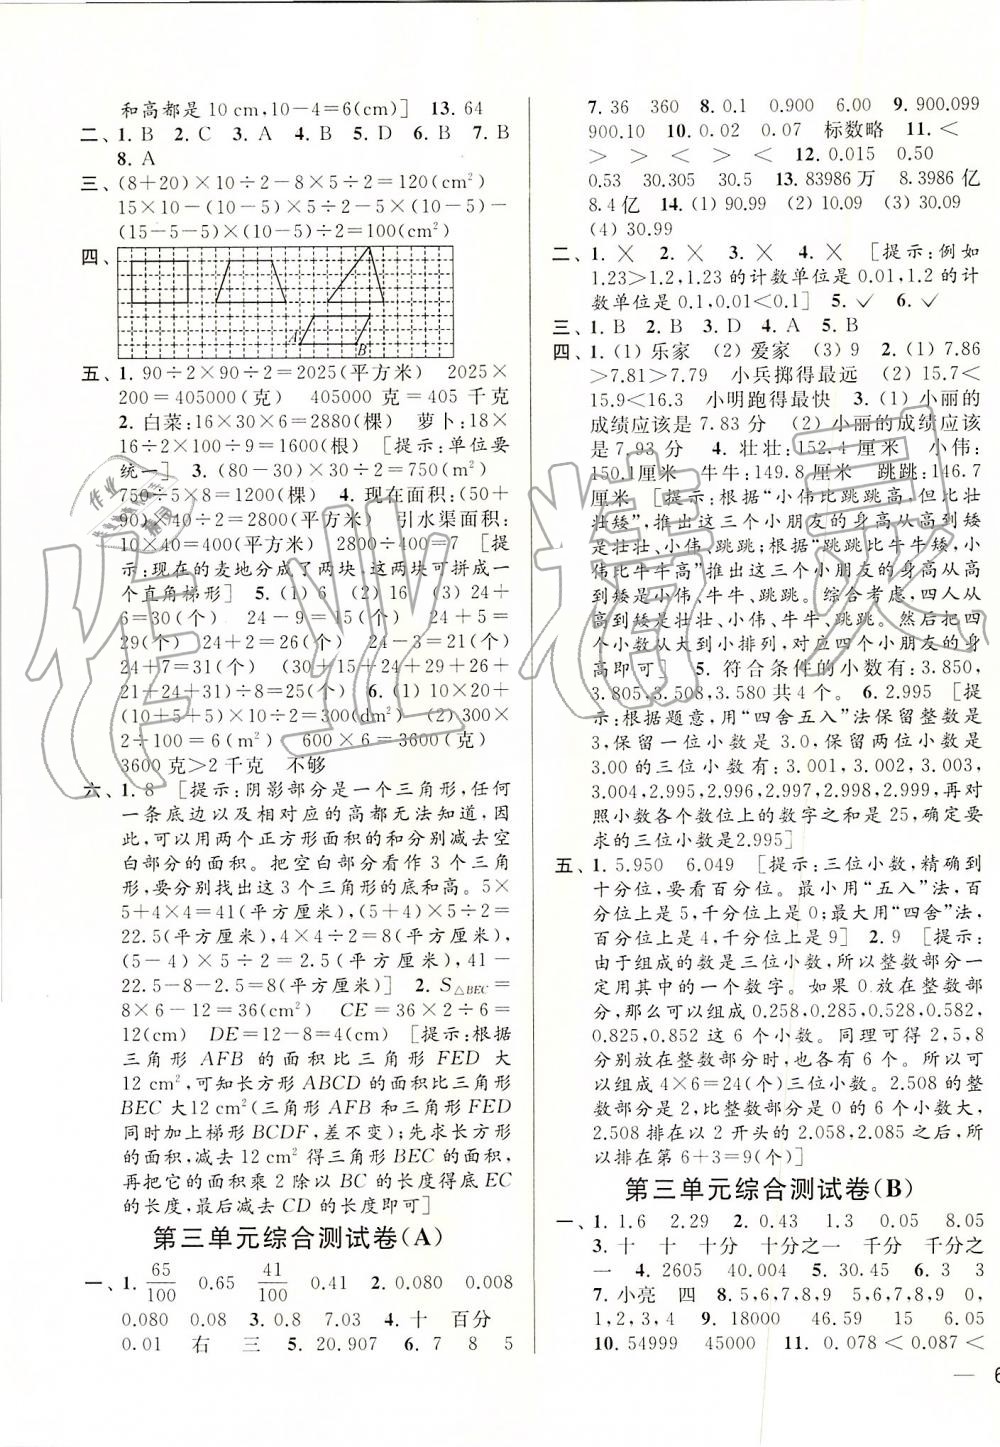 和高都是 10 cm,10-4=6(cm)] 13. 64
二、1. B 2. C 3. A 4. B 5. D 6. B 7. B
8. A
三、(8+20)×10÷2-8×5÷2=120(cm²)
15×10-(10-5)×5÷2-5×(10-5)-
(15-5-5)×(10-5)÷2=100(cm²)
四、
A
B
五、1. 90÷2×90÷2=2025(平方米) 2025×
200=405000(克) 405000 克=405 千克
2. 白菜:16×30×6=2880(棵) 萝卜:18×
16÷2×100÷9=1600(根) [提示:单位要
统一] 3. (80-30)×30÷2=750(m²)
750÷5×8=1200(棵) 4. 现在面积:(50+
90)×40÷2=2800(平方米) 引水渠面积:
10×40=400(平方米) 2800÷400=7 [提
示:现在的麦地分成了两块,这两块可拼成一
个直角梯形] 5. (1) 6 (2) 16 (3) 24+
6=30(个) 24-9=15(个) 24+5=
29(个) 24+2=26(个) 24-3=21(个)
24+7=31(个) (30+15+24+29+26+
21+24+31)÷8=25(个) 6. (1) 10×20+
(10+5+5)×10÷2=300(dm²) (2) 300×
2÷100=6(m²) 600×6=3600(克)
3600 克>2 千克 不够
六、1. 8 [提示:阴影部分是一个三角形,任何
一条底边以及相对应的高都无法知道,因
此,可以用两个正方形面积的和分别减去空
白部分的面积。把空白部分看作 3 个三角
形,要分别找出这 3 个三角形的底和高。5×
5+4×4=41(平方厘米),(5+4)×5÷2=
22.5(平方厘米),4×4÷2=8(平方厘米),
(5-4)×5÷2=2.5(平方厘米),41-
22.5-8-2.5=8(平方厘米)] 2. S△BEC=
8×6-12=36(cm²) CE=36×2÷6=
12(cm) DE=12-8=4(cm) [提示:根据
三角形 AFB 的面积比三角形 FED 大
12 cm²,可知长方形 ABCD 的面积比三角形
BEC 大12 cm²(三角形 AFB 和三角形 FED
同时加上梯形 BCDF,差不变);先求长方形
的面积,减去 12 cm² 得三角形 BEC 的面积,
再把它的面积乘 2 除以 BC 的长度得底 EC
的长度,最后减去 CD 的长度即可]
第三单元综合测试卷(A)
一、1. 65/100 0.65 41/100 0.41 2. 0.080 0.008
0.080 0.08 3. 0.8 7.03 4. 十 百分
0.01 右 三 5. 20.907 6. 7 8 5
7. 36 360 8. 0.1 0.900 6.00 9. 900.099
900.10 10. 0.02 0.07 标数略 11. <
> > < > < 12. 0.015 0.50
0.53 30.305 30.5 13. 83986 万 8.3986 亿
8.4 亿 14. (1) 90.99 (2) 10.09 (3) 30.09
(4) 30.99
二、1. × 2. × 3. × 4. × [提示:例如
1.23>1.2,1.23 的计数单位是 0.01,1.2 的计
数单位是 0.1,0.01<0.1] 5. ✓ 6. ✓
三、1. B 2. B 3. D 4. A 5. B
四、1. (1) 乐家 (2) 爱家 (3) 9 2. (1) 7.86
>7.81>7.79 小兵掷得最远 (2) 15.7<
15.9<16.3 小明跑得最快 3. (1) 小丽的
成绩应该是 7.83 分 (2) 小丽的成绩应该
是 7.93 分 4. 壮壮:152.4 厘米 小伟:
150.1厘米 牛牛:149.8 厘米 跳跳:146.7
厘米 [提示:根据“小伟比跳跳高,但比壮
壮矮”,推出这三个小朋友的身高从高到矮
是壮壮、小伟、跳跳;根据“跳跳比牛牛矮,小
伟比牛牛高”推出这三个小朋友的身高从高
到矮是小伟、牛牛、跳跳。综合考虑,四人从
高到矮是壮壮、小伟、牛牛、跳跳。然后把四
个小数从大到小排列,对应四个小朋友的身
高即可] 5. 符合条件的小数有:3.850,
3.805,3.508,3.580 共 4 个。 6. 2.995 [提
示:根据题意,用“四舍五入”法保留整数是
3,保留一位小数是 3.0,保留两位小数是
3.00 的三位小数有:3.001,3.002,3.003,
3.004,2.995,2.996,2.997,2.998,2.999,再对
照小数各个数位上的数字之和是 25,确定要
求的三位小数是2.995]
五、1. 5.950 6.049 [提示:三位小数,精确到
十分位,要看百分位。最小用“五入”法,百
分位上是 5,千分位上是 0;最大用“四舍”法,
百分位上是 4,千分位上是 9] 2. 9 [提示:
由于组成的数是三位小数,所以整数部分一
定用其中的一个数字。如果 0 放在整数部
分,那么可以组成 0.258,0.285,0.528,0.582,
0.825,0.852 这 6 个小数。同理可得 2,5,8
分别放在整数部分时,也各有 6 个。所以可
以组成 4×6=24(个)三位小数。2.508 的整
数部分是 2,比整数部分是 0 的 6 个小数大,
2.508 排在以 2 开头的 2.058,2.085 之后,所
以排在第 6+3=9(个)]
第三单元综合测试卷(B)
一、1. 1.6 2.29 2. 0.43 1.3 0.05 8.05
3. 十 十 十分 十分之一 千分 千分之
一 4. 2605 40.004 5. 30.45 6. 3 3
7. 小亮 四 8. 5,6,7,8,9 5,6,7,8,9 0,
1,2,3,4 9. 18000 46.59 15 6.05
10. 54999 45000 11. 0.078<0.087<
— 6
作业精灵
作业精灵